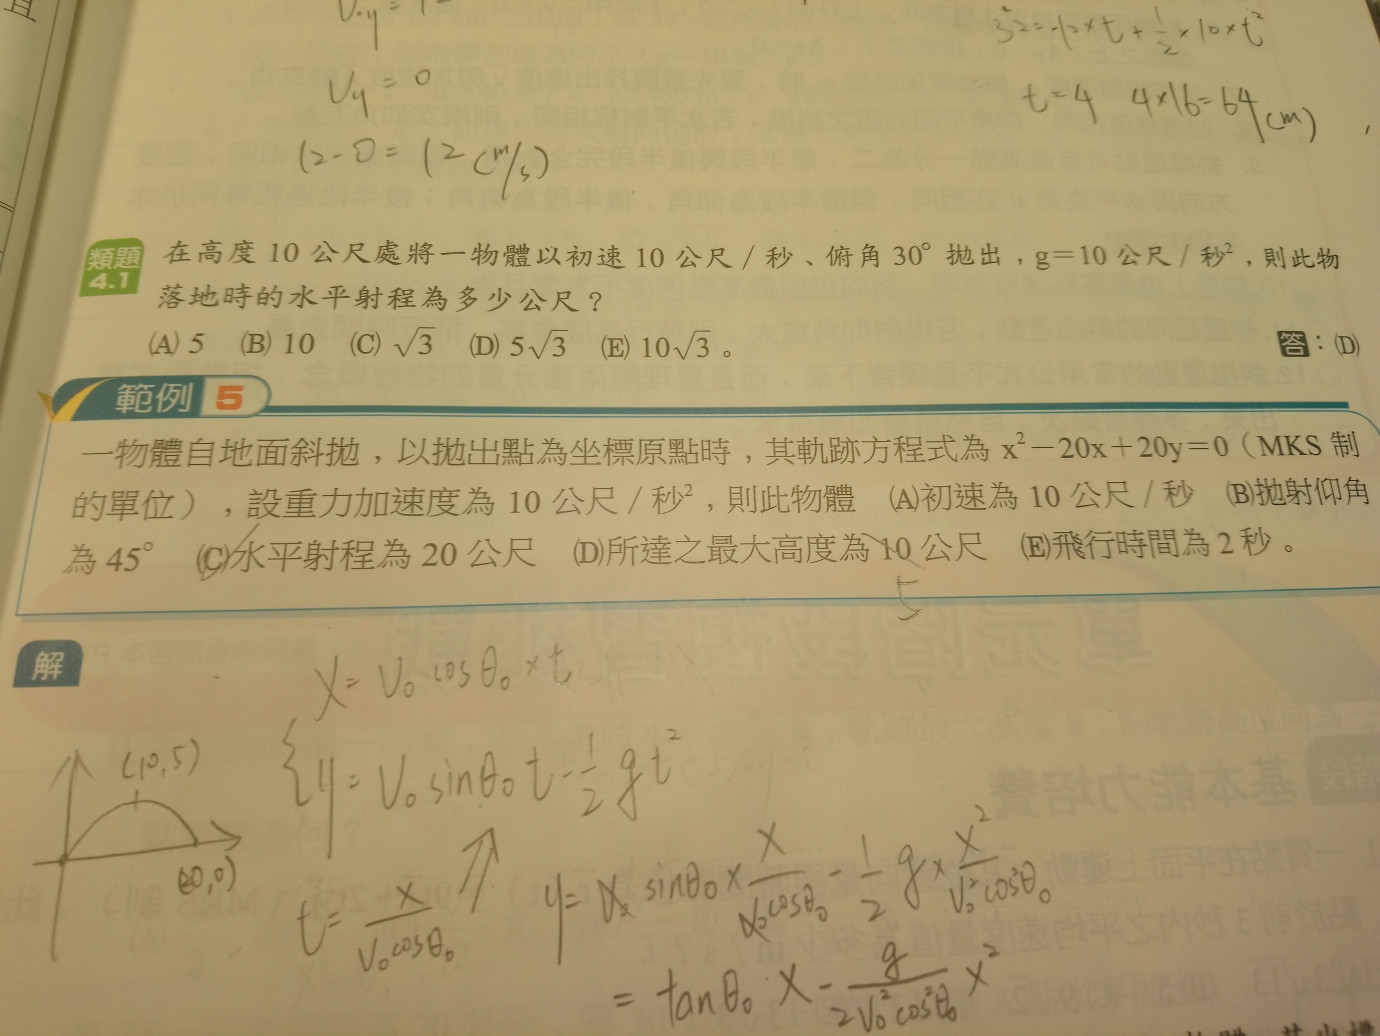 V₀y = 12
32 = -12×t + 1/2 ×10×t²
Vy = 0
t = 4 4×16 = 64 (m)
12-0 = 12 (m/s)
類題 4.1 在高度 10 公尺處將一物體以初速 10 公尺/秒、俯角 30° 拋出,g=10 公尺/秒²,則此物
落地時的水平射程為多少公尺?
(A) 5 (B) 10 (C) √3 (D) 5√3 (E) 10√3 。 答:(D)
範例 5
一物體自地面斜拋,以拋出點為坐標原點時,其軌跡方程式為 x²-20x+20y=0(MKS 制
的單位),設重力加速度為 10 公尺/秒²,則此物體 (A)初速為 10 公尺/秒 (B)拋射仰角
為 45° (C)水平射程為 20 公尺 (D)所達之最大高度為 10 公尺 (E)飛行時間為 2 秒。
5
解
x = V₀ cosθ₀ × t
(10,5)
y = V₀ sinθ₀ t - 1/2 gt²
(20,0)
t = x / V₀cosθ₀
y = V₀ sinθ₀ × x / V₀cosθ₀ - 1/2 g × x² / V₀²cos²θ₀
= tanθ₀ x - g / 2V₀²cos²θ₀ x²